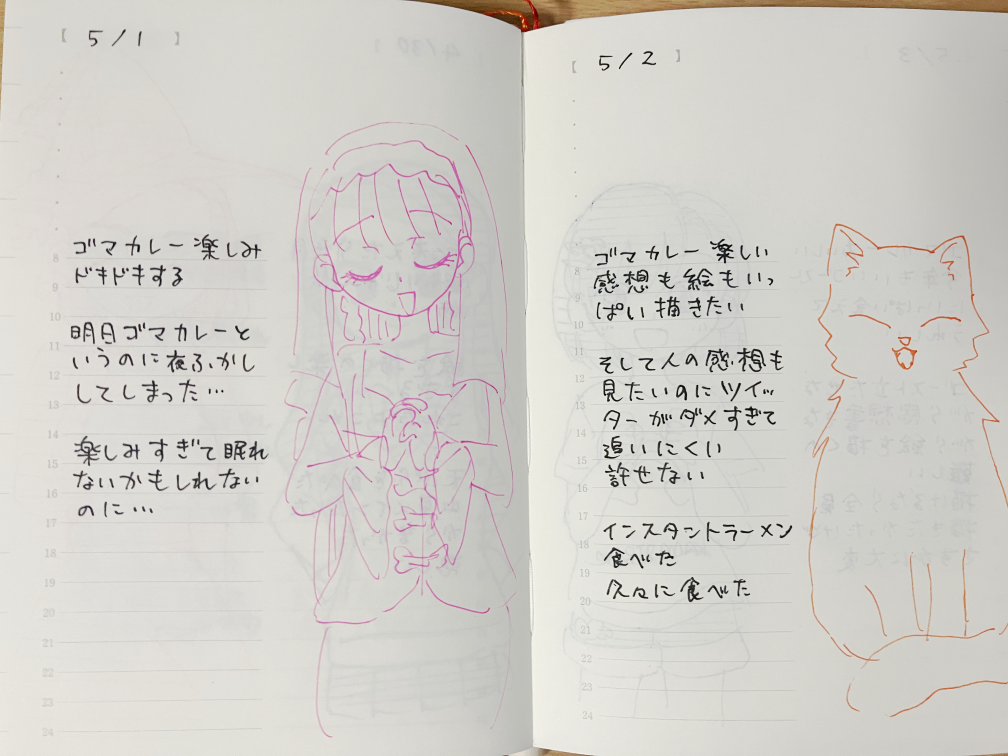 【 5/1 】
ゴマカレー楽しみ
ドキドキする
明日ゴマカレーと
いうのに夜ふかし
してしまった…
楽しみすぎて眠れ
ないかもしれない
のに…
8
10
11
12
13
14
15
16
17
18
19
20
21
22
23
24
【 5/2 】
ゴマカレー楽しい
感想も絵もいっ
ぱい描きたい
そして人の感想も
見たいのにツイッ
ターがダメすぎて
追いにくい
許せない
インスタントラーメン
食べた
久々に食べた
8
10
11
12
13
14
15
16
17
18
19
20
21
22
23
24